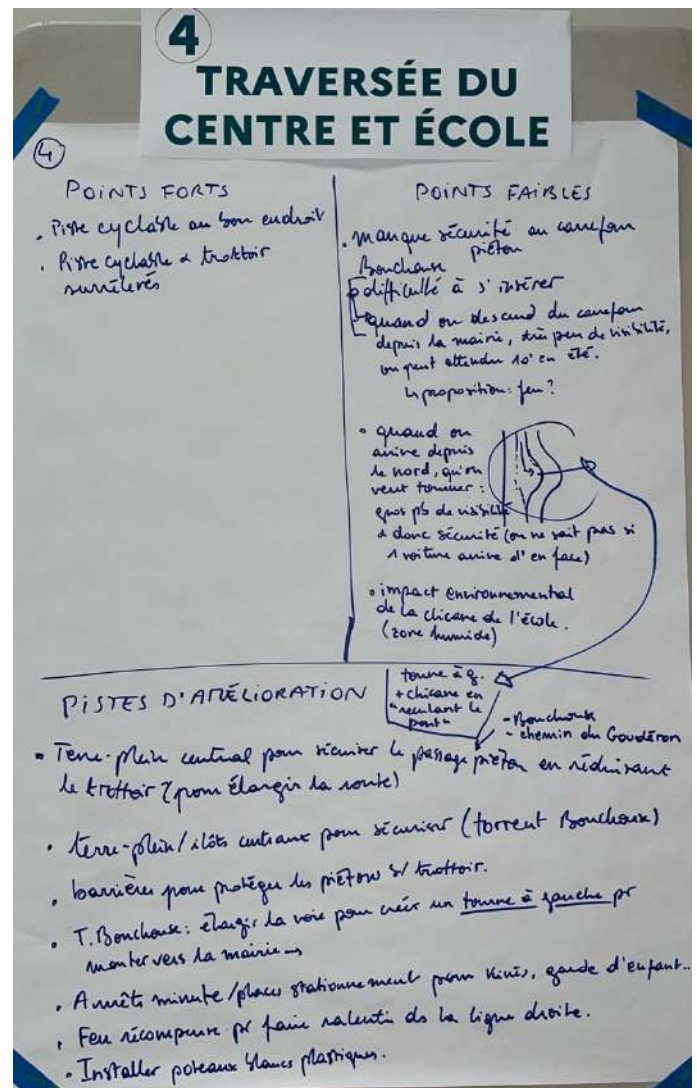 4
TRAVERSÉE DU
CENTRE ET ÉCOLE
4
POINTS FORTS
. Piste cyclable au bon endroit
. Piste cyclable & trottoir
surrélevés
POINTS FAIBLES
. manque sécurité au carrefour
piéton
Bouchouse
difficulté à s'insérer
quand on descend du carrefour
depuis la mairie, très peu de visibilité,
on peut attendre 10' en été.
↳ proposition : feu ?
• quand on
arrive depuis
le nord, qu'on
veut tourner :
gros pb de visibilité
& donc sécurité (on ne sait pas si
1 voiture arrive d'en face)
• impact environnemental
de la chicane de l'école.
(zone humide)
PISTES D'AMÉLIORATION
tourne à g.
+ chicane en
"reculant le
pont"
- Bouchouse
- chemin du Goudéron
• Terre-plein central pour sécuriser le passage piéton en réduisant
le trottoir ? (pour élargir la route)
• terre-plein/ilôts centraux pour sécuriser (torrent Bouchouse)
. barrières pour protéger les piétons s/ trottoir.
• T. Bouchouse : élargir la voie pour créer un tourne à gauche pr
monter vers la mairie →
. Arrêts minute/places stationnement pour kinés, garde d'enfant..
. Feu récompense pr faire ralentir ds la ligne droite.
• Installer poteaux blancs plastiques.